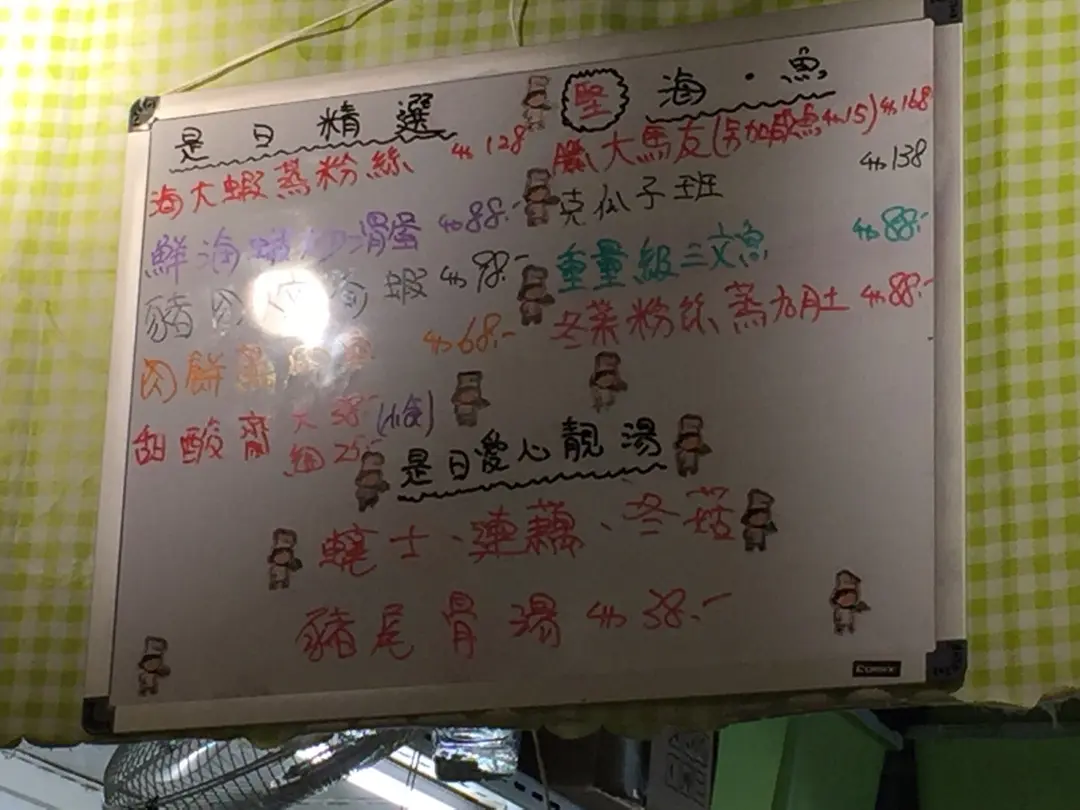 是日精選
海大蝦蒸粉絲 128
鮮海 滑蛋 88.-
豬肉 蝦 78.-
肉餅蒸 68.-
甜酸齋 大 38 (小食)
細 25.-
堅 海·魚
大馬友(另加 15) 168
克瓜子班 138
重量級三文魚 88.-
冬菜粉絲蒸九肚 88.-
是日愛心靚湯
士、連藕、冬菇
豬尾骨湯 38.-
COMIX